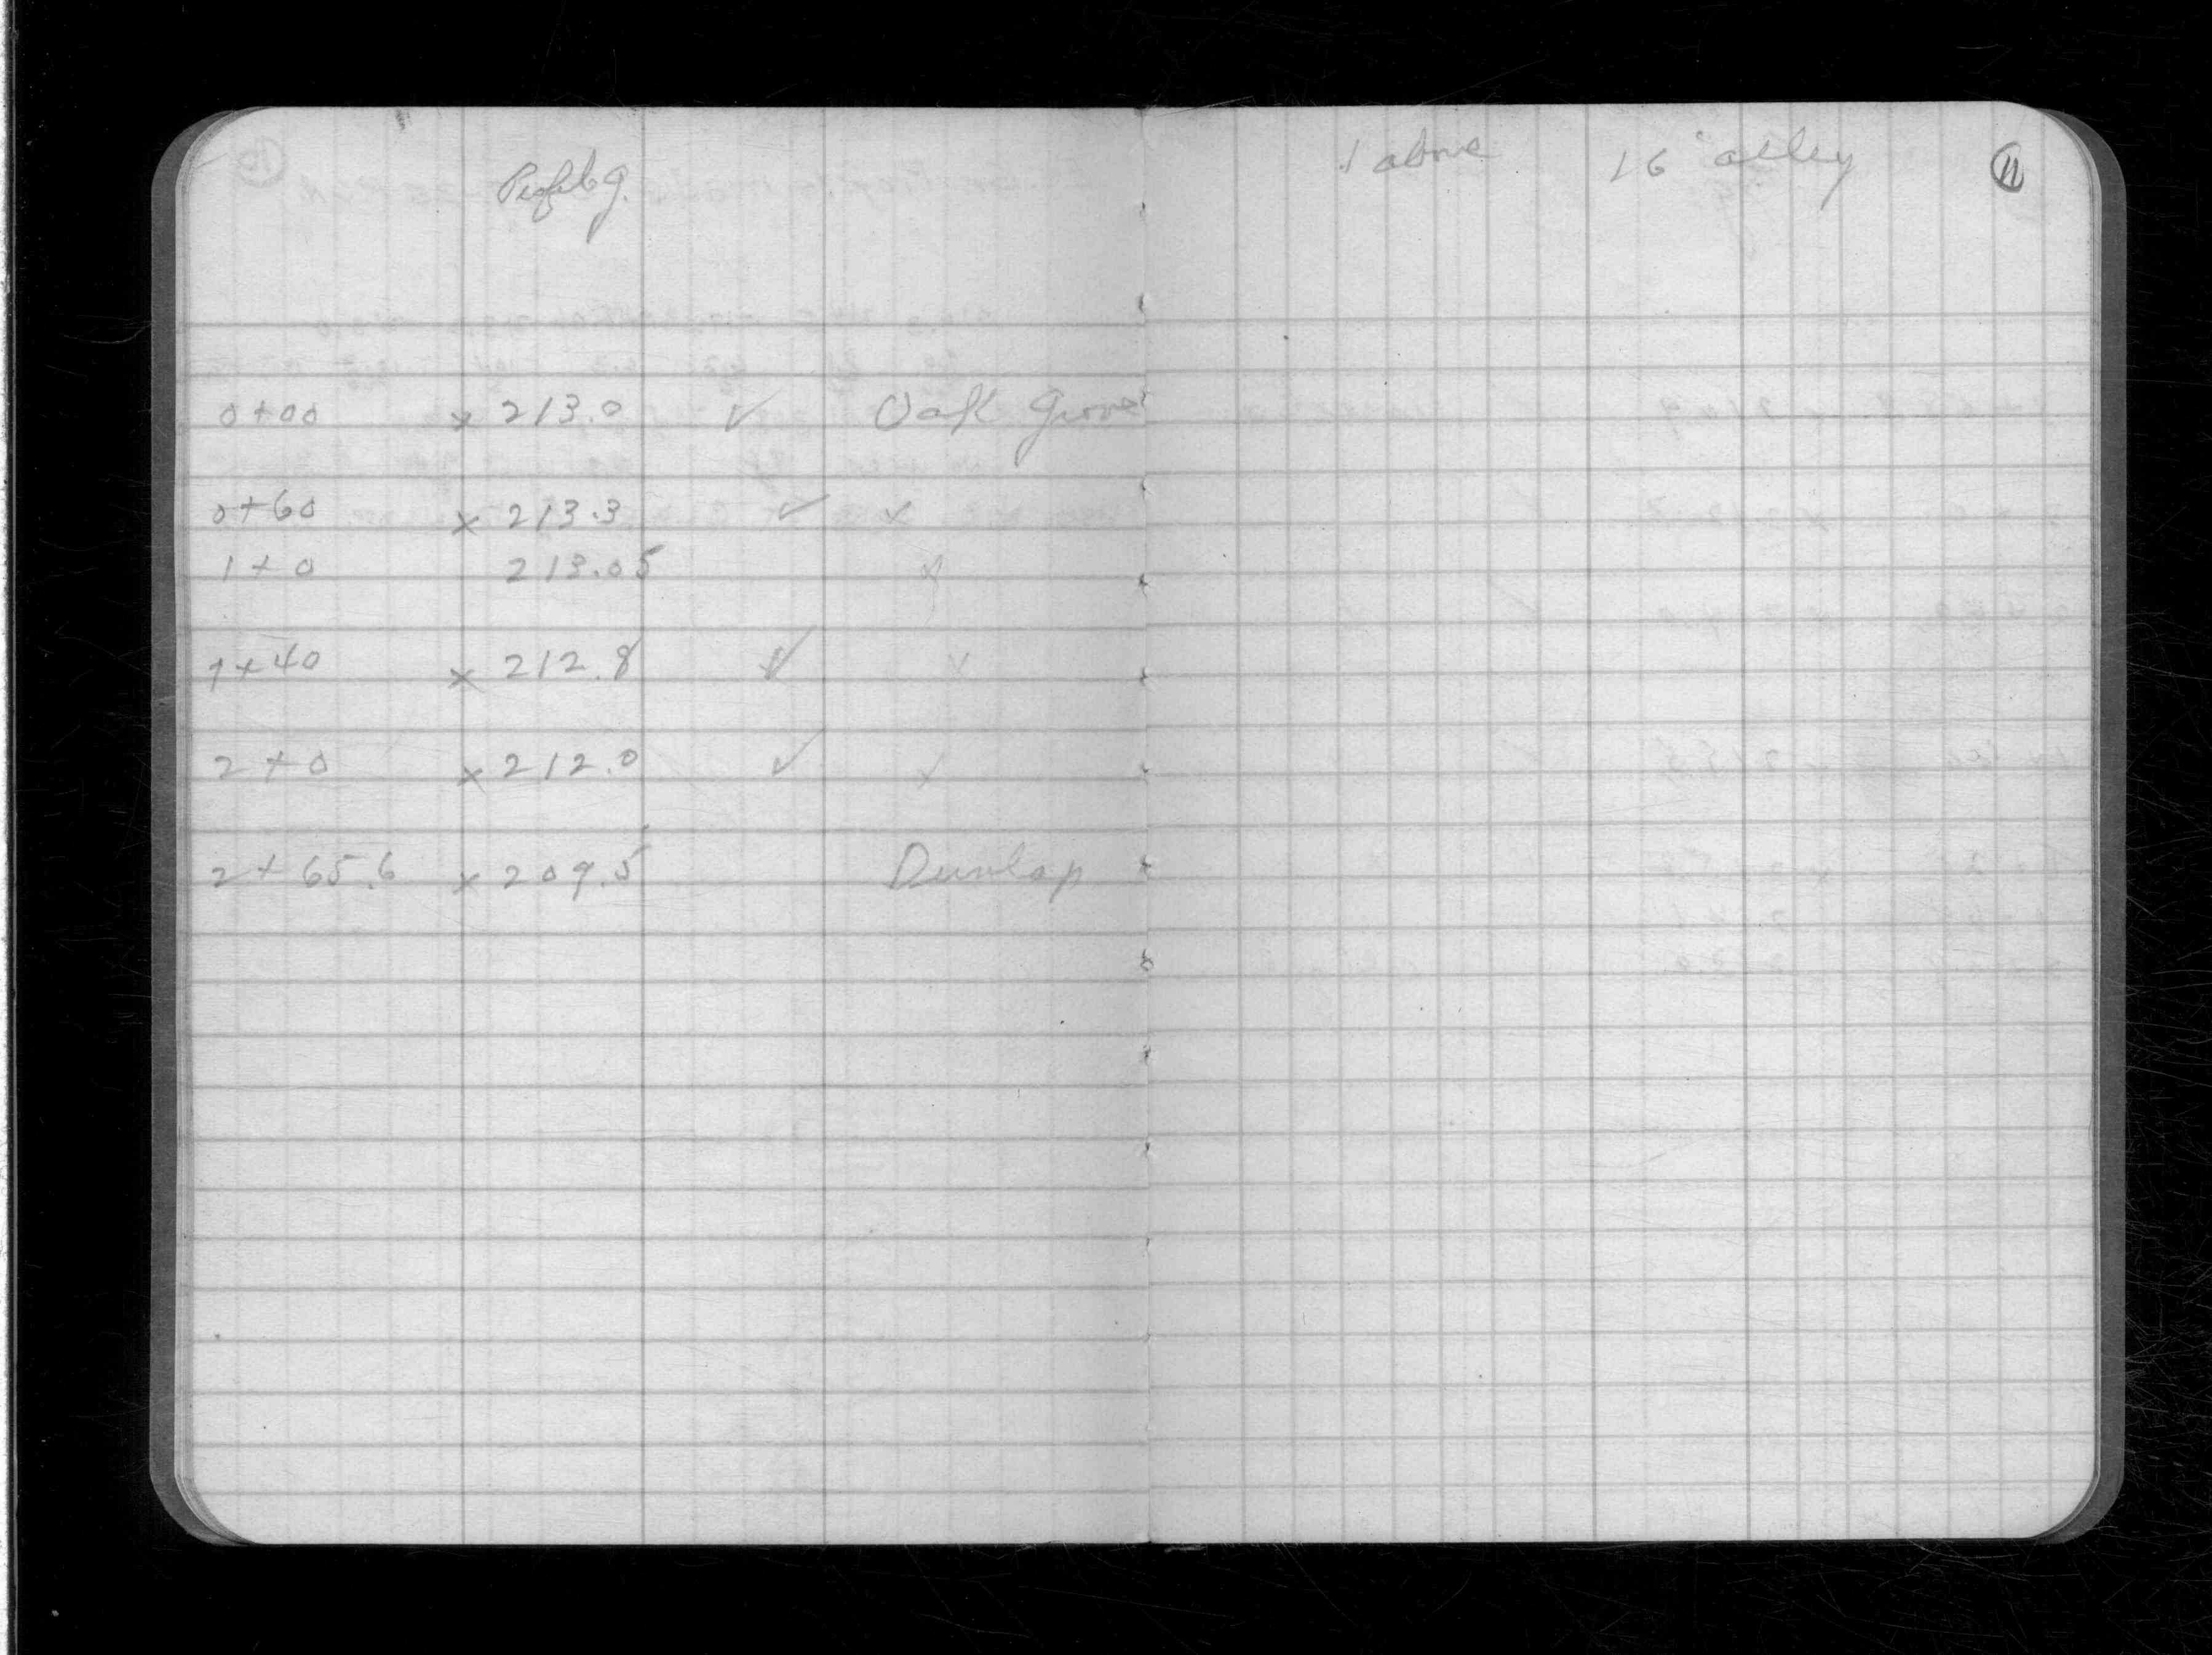 Profile g. 1 above 16' alley 11
0+00 x 213.0 ✓ Oak Grove
0+60 x 213.3 ✓ x
1+0 213.05 x
1+40 x 212.8 ✓ x
2+0 x 212.0 ✓ x
2+65.6 x 209.5 Dunlap